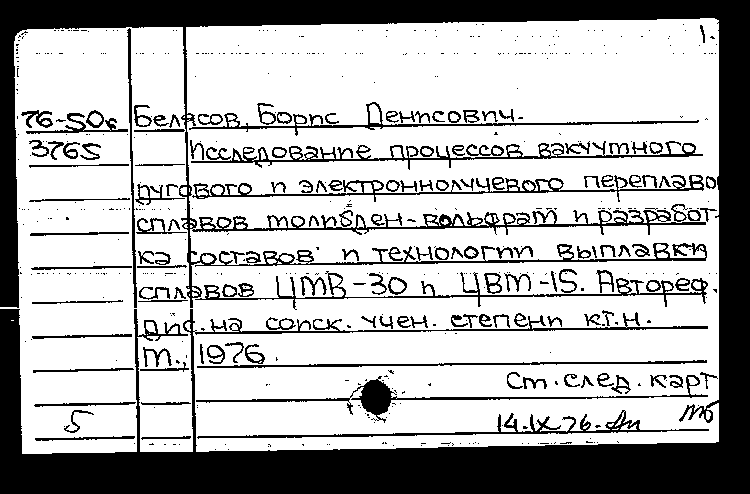 1.
76-50к Белясов, Борис Денисович.
3765 Исследование процессов вакуумного
дугового и электроннолучевого переплавов
сплавов молибден-вольфрам и разработ-
ка составов и технологии выплавки
сплавов ЦМВ-30 и ЦВМ-15. Автореф.
дис. на соиск. учен. степени к.т.н.
М., 1976.
См. след. карт
5 14.IX.76.